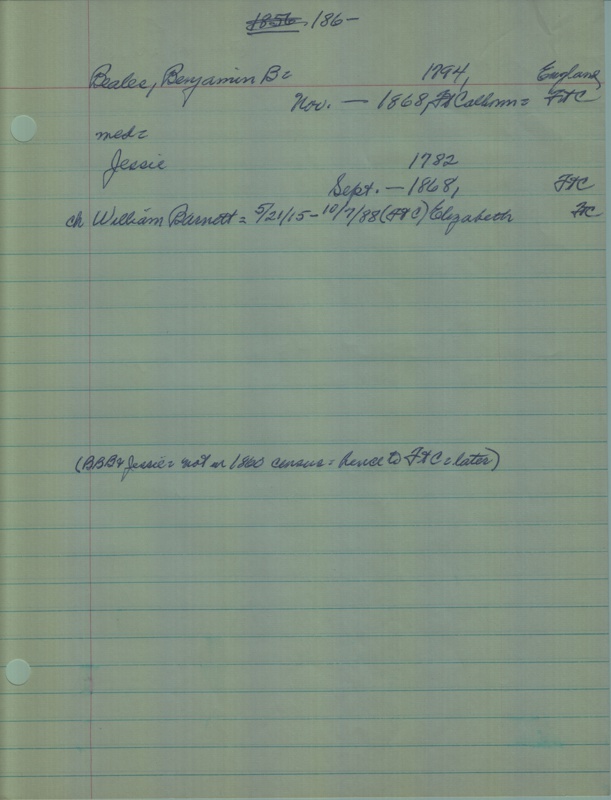 1856, 186-
Beales, Benjamin B= 1794, England
Nov. — 1868, Ft Calhoun = FtC
med=
Jessie 1782
Sept. — 1868, FtC
ch William Barnett = 5/21/15 - 10/7/88 (FtC) Elizabeth FtC
(BBB & Jessie = not in 1860 census = hence to FtC = later)